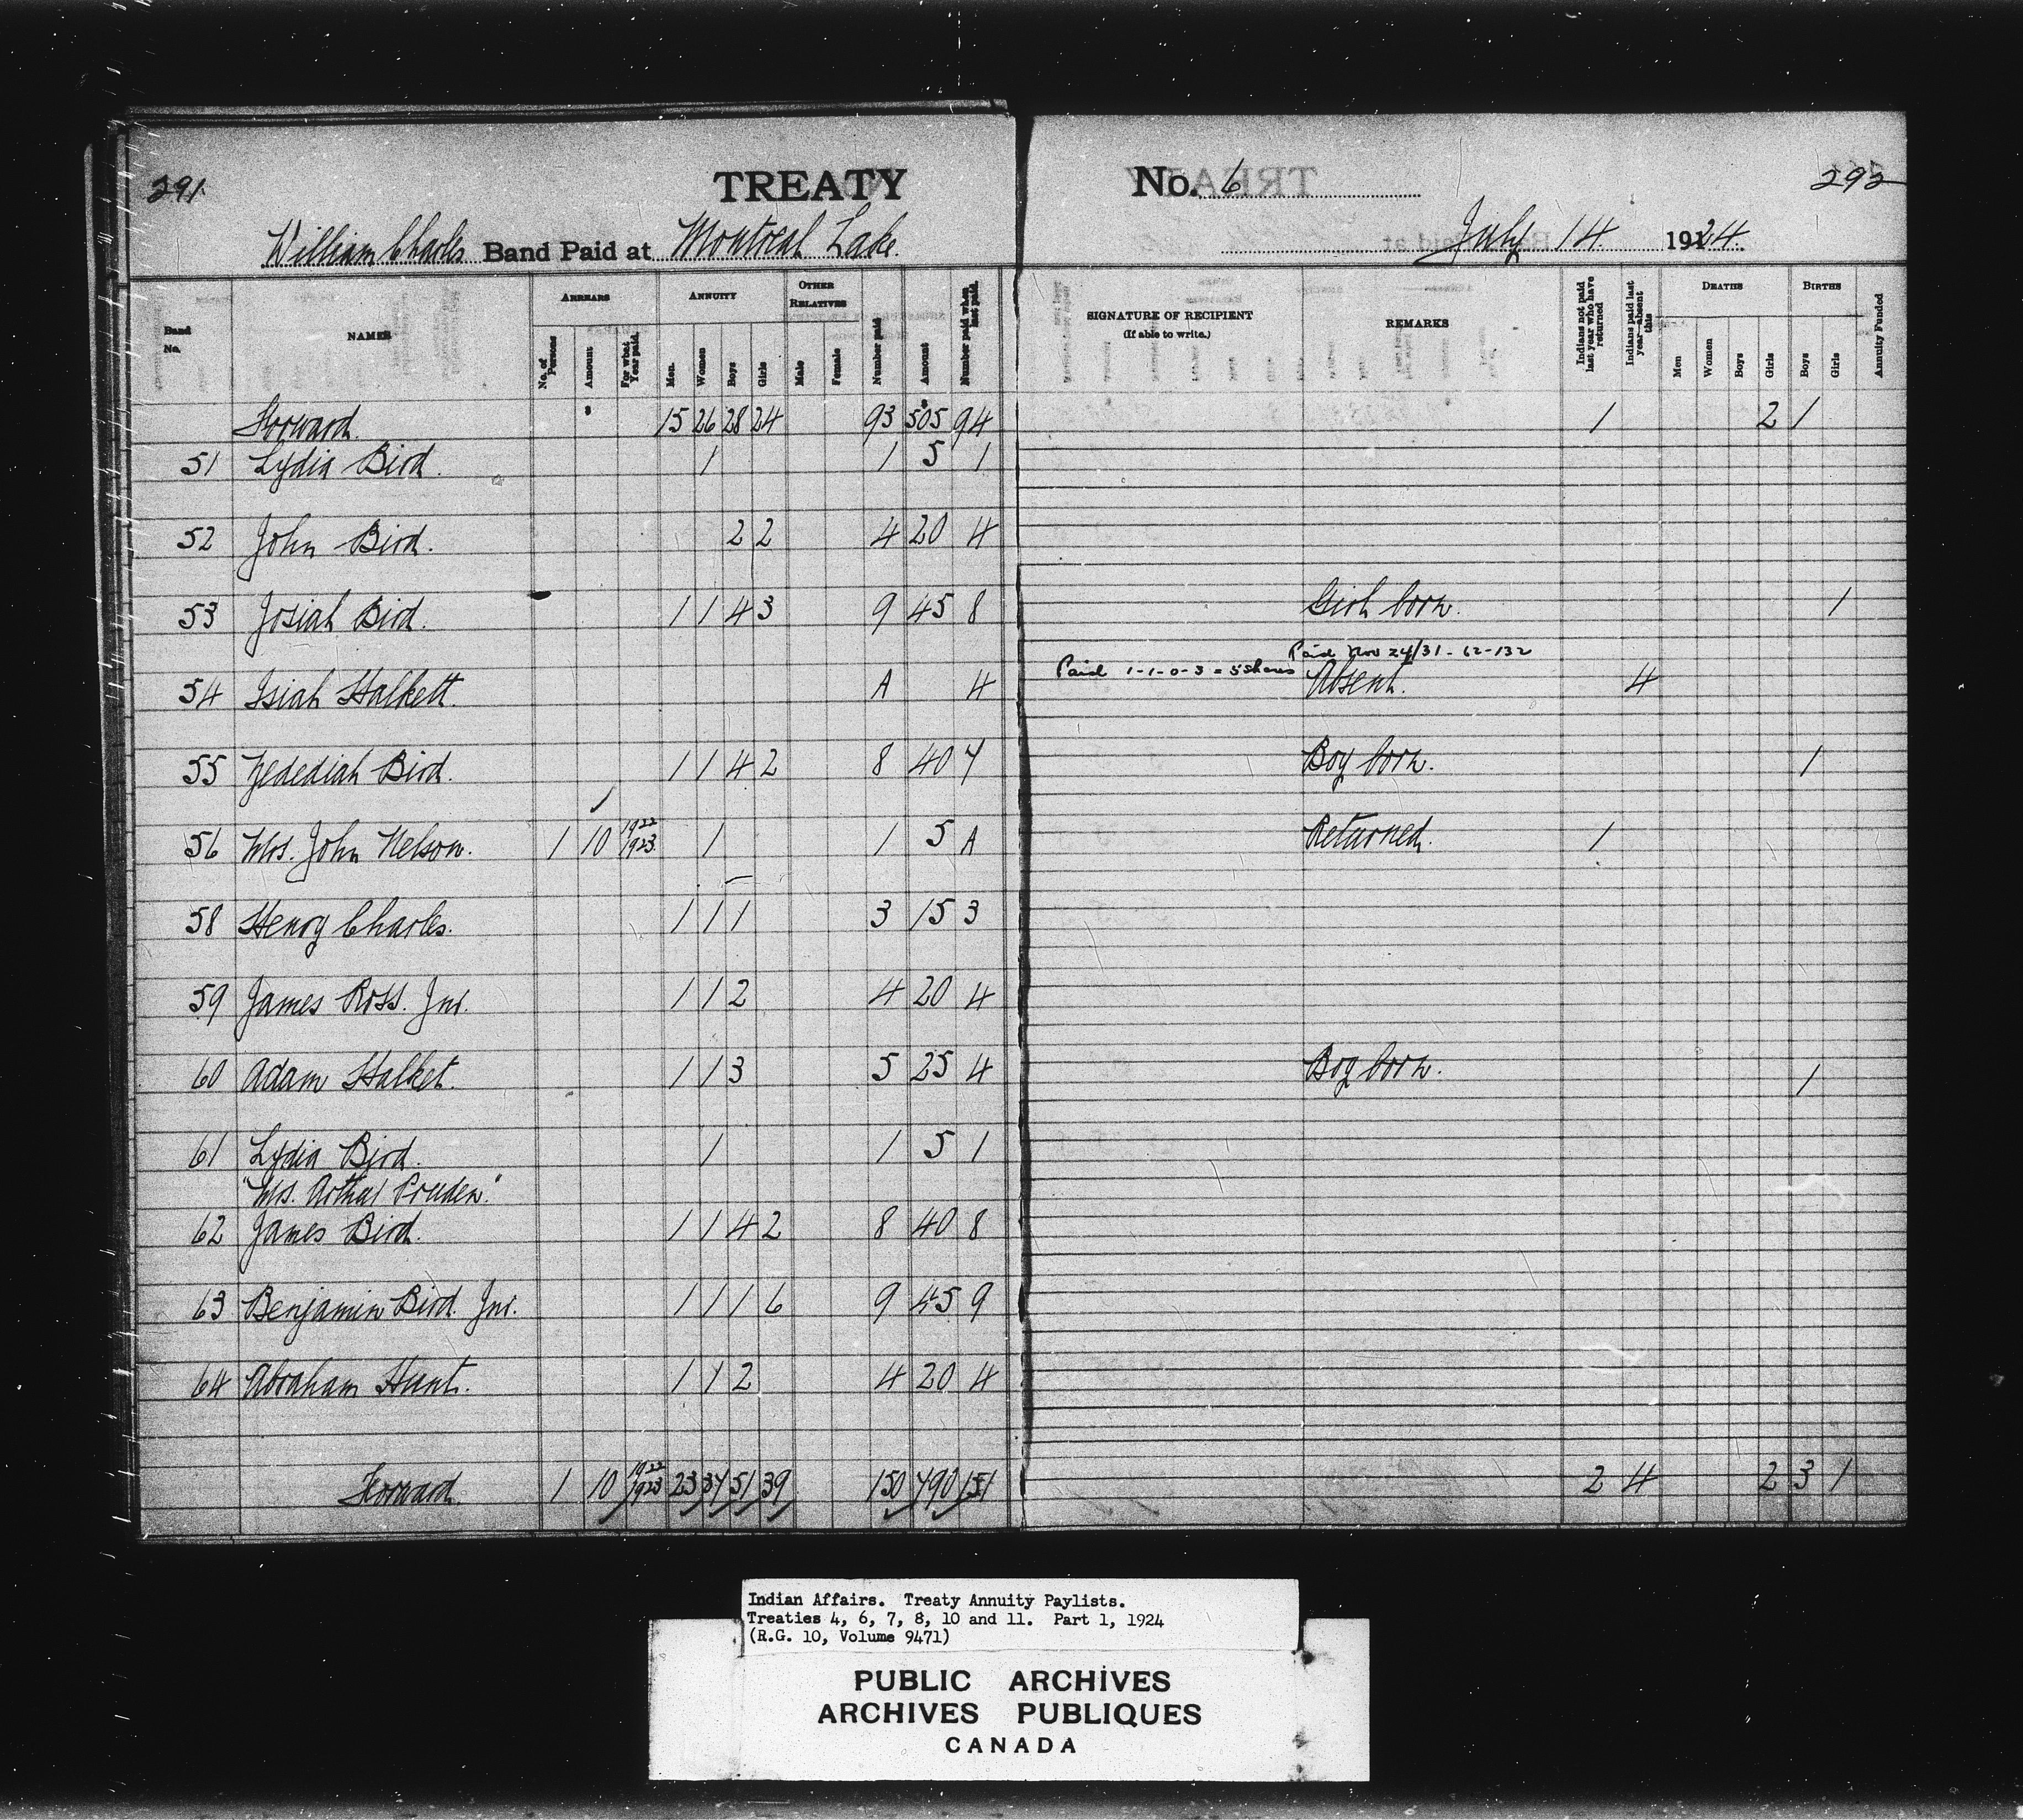 291 TREATY No. 6 292
William Charles Band Paid at Montreal Lake. July 14. 1924.
Band No. NAMES ARREARS No. of Persons Amount For what Year paid. ANNUITY Men. Women Boys Girls OTHER RELATIVES Male Female Number paid Amount Number paid when last paid. SIGNATURE OF RECIPIENT (If able to write.) REMARKS Indians not paid last year who have returned Indians paid last year—absent this DEATHS Men Women Boys Girls BIRTHS Boys Girls Annuity Funded
Forward. 15 26 28 24 93 505 94 1 2 1
51 Lydia Bird. 1 1 5 1
52 John Bird. 2 2 4 20 4
53 Josiah Bird. 1 1 4 3 9 45 8 Girl born. 1
Paid Nov 24/31 - 62-132
Paid 1-1-0-3 = 5 shares
54 Isiah Halkett. A 4 Absent. 4
55 Zedediah Bird. 1 1 4 2 8 40 7 Boy born. 1
56 Mrs. John Nelson. 1 10 1922 1923. 1 1 5 A Returned. 1
58 Henry Charles. 1 1 1 3 15 3
59 James Ross. Jnr. 1 1 2 4 20 4
60 Adam Halket. 1 1 3 5 25 4 Boy born. 1
61 Lydia Bird. 1 1 5 1
"Mrs. Arthur Pruden."
62 James Bird. 1 1 4 2 8 40 8
63 Benjamin Bird. Jnr. 1 1 1 6 9 45 9
64 Abraham Hunt. 1 1 2 4 20 4
Forward 1 10 1922 1923 23 34 51 39 150 790 151 2 4 2 3 1
Indian Affairs. Treaty Annuity Paylists.
Treaties 4, 6, 7, 8, 10 and 11. Part 1, 1924
(R.G. 10, Volume 9471)
PUBLIC ARCHIVES
ARCHIVES PUBLIQUES
CANADA